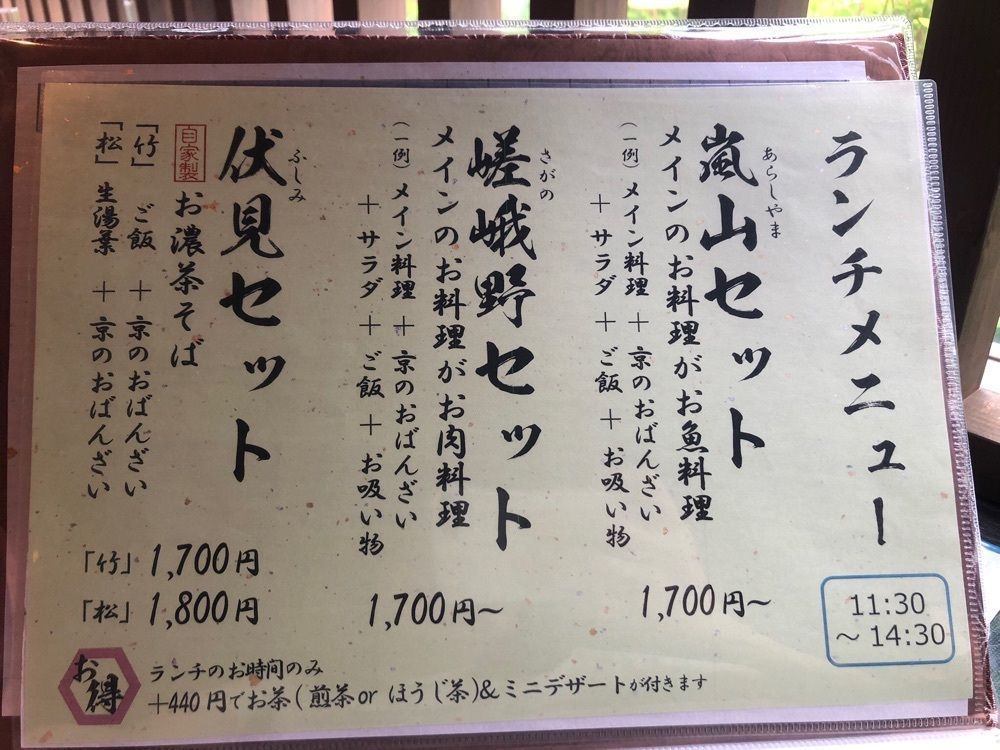 ランチメニュー
11:30
～14:30
あらしやま
嵐山セット
メインのお料理がお魚料理
(一例) メイン料理 + 京のおばんざい
+ サラダ + ご飯 + お吸い物
1,700円～
さがの
嵯峨野セット
メインのお料理がお肉料理
(一例) メイン料理 + 京のおばんざい
+ サラダ + ご飯 + お吸い物
1,700円～
ふしみ
伏見セット
自家製 お濃茶そば
「竹」 ご飯 + 京のおばんざい
「松」 生湯葉 + 京のおばんざい
「竹」 1,700円
「松」 1,800円
お得
ランチのお時間のみ
+440円でお茶(煎茶or ほうじ茶)&ミニデザートが付きます